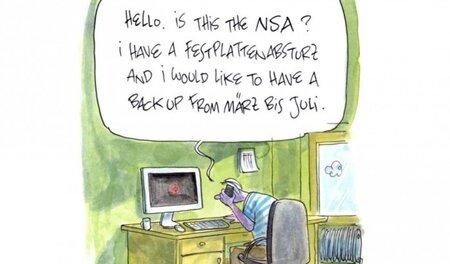 HELLO. IS THIS THE NSA?
I HAVE A FESTPLATTENABSTURZ
AND I WOULD LIKE TO HAVE A
BACKUP FROM MÄRZ BIS JULI.